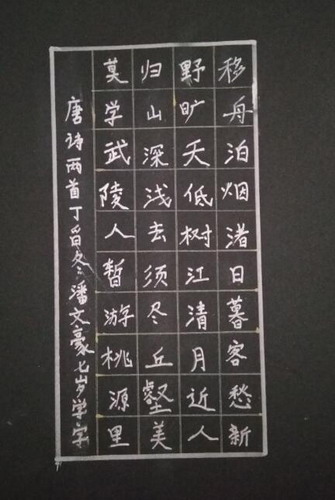 移舟泊烟渚日暮客愁新
野旷天低树江清月近人
归山深浅去须冬丘壑美
莫学武陵人暫游桃源里
唐诗两首丁酉冬潘文豪七岁学字